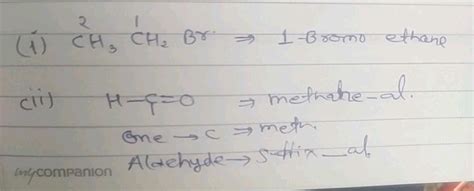 2 1
(i) CH3 CH2 Br ⇒ 1-Bromo ethane
(ii) H-C=O ⇒ methane-al.
One → C ⇒ meth.
Aldehyde → Suffix - al.
companion